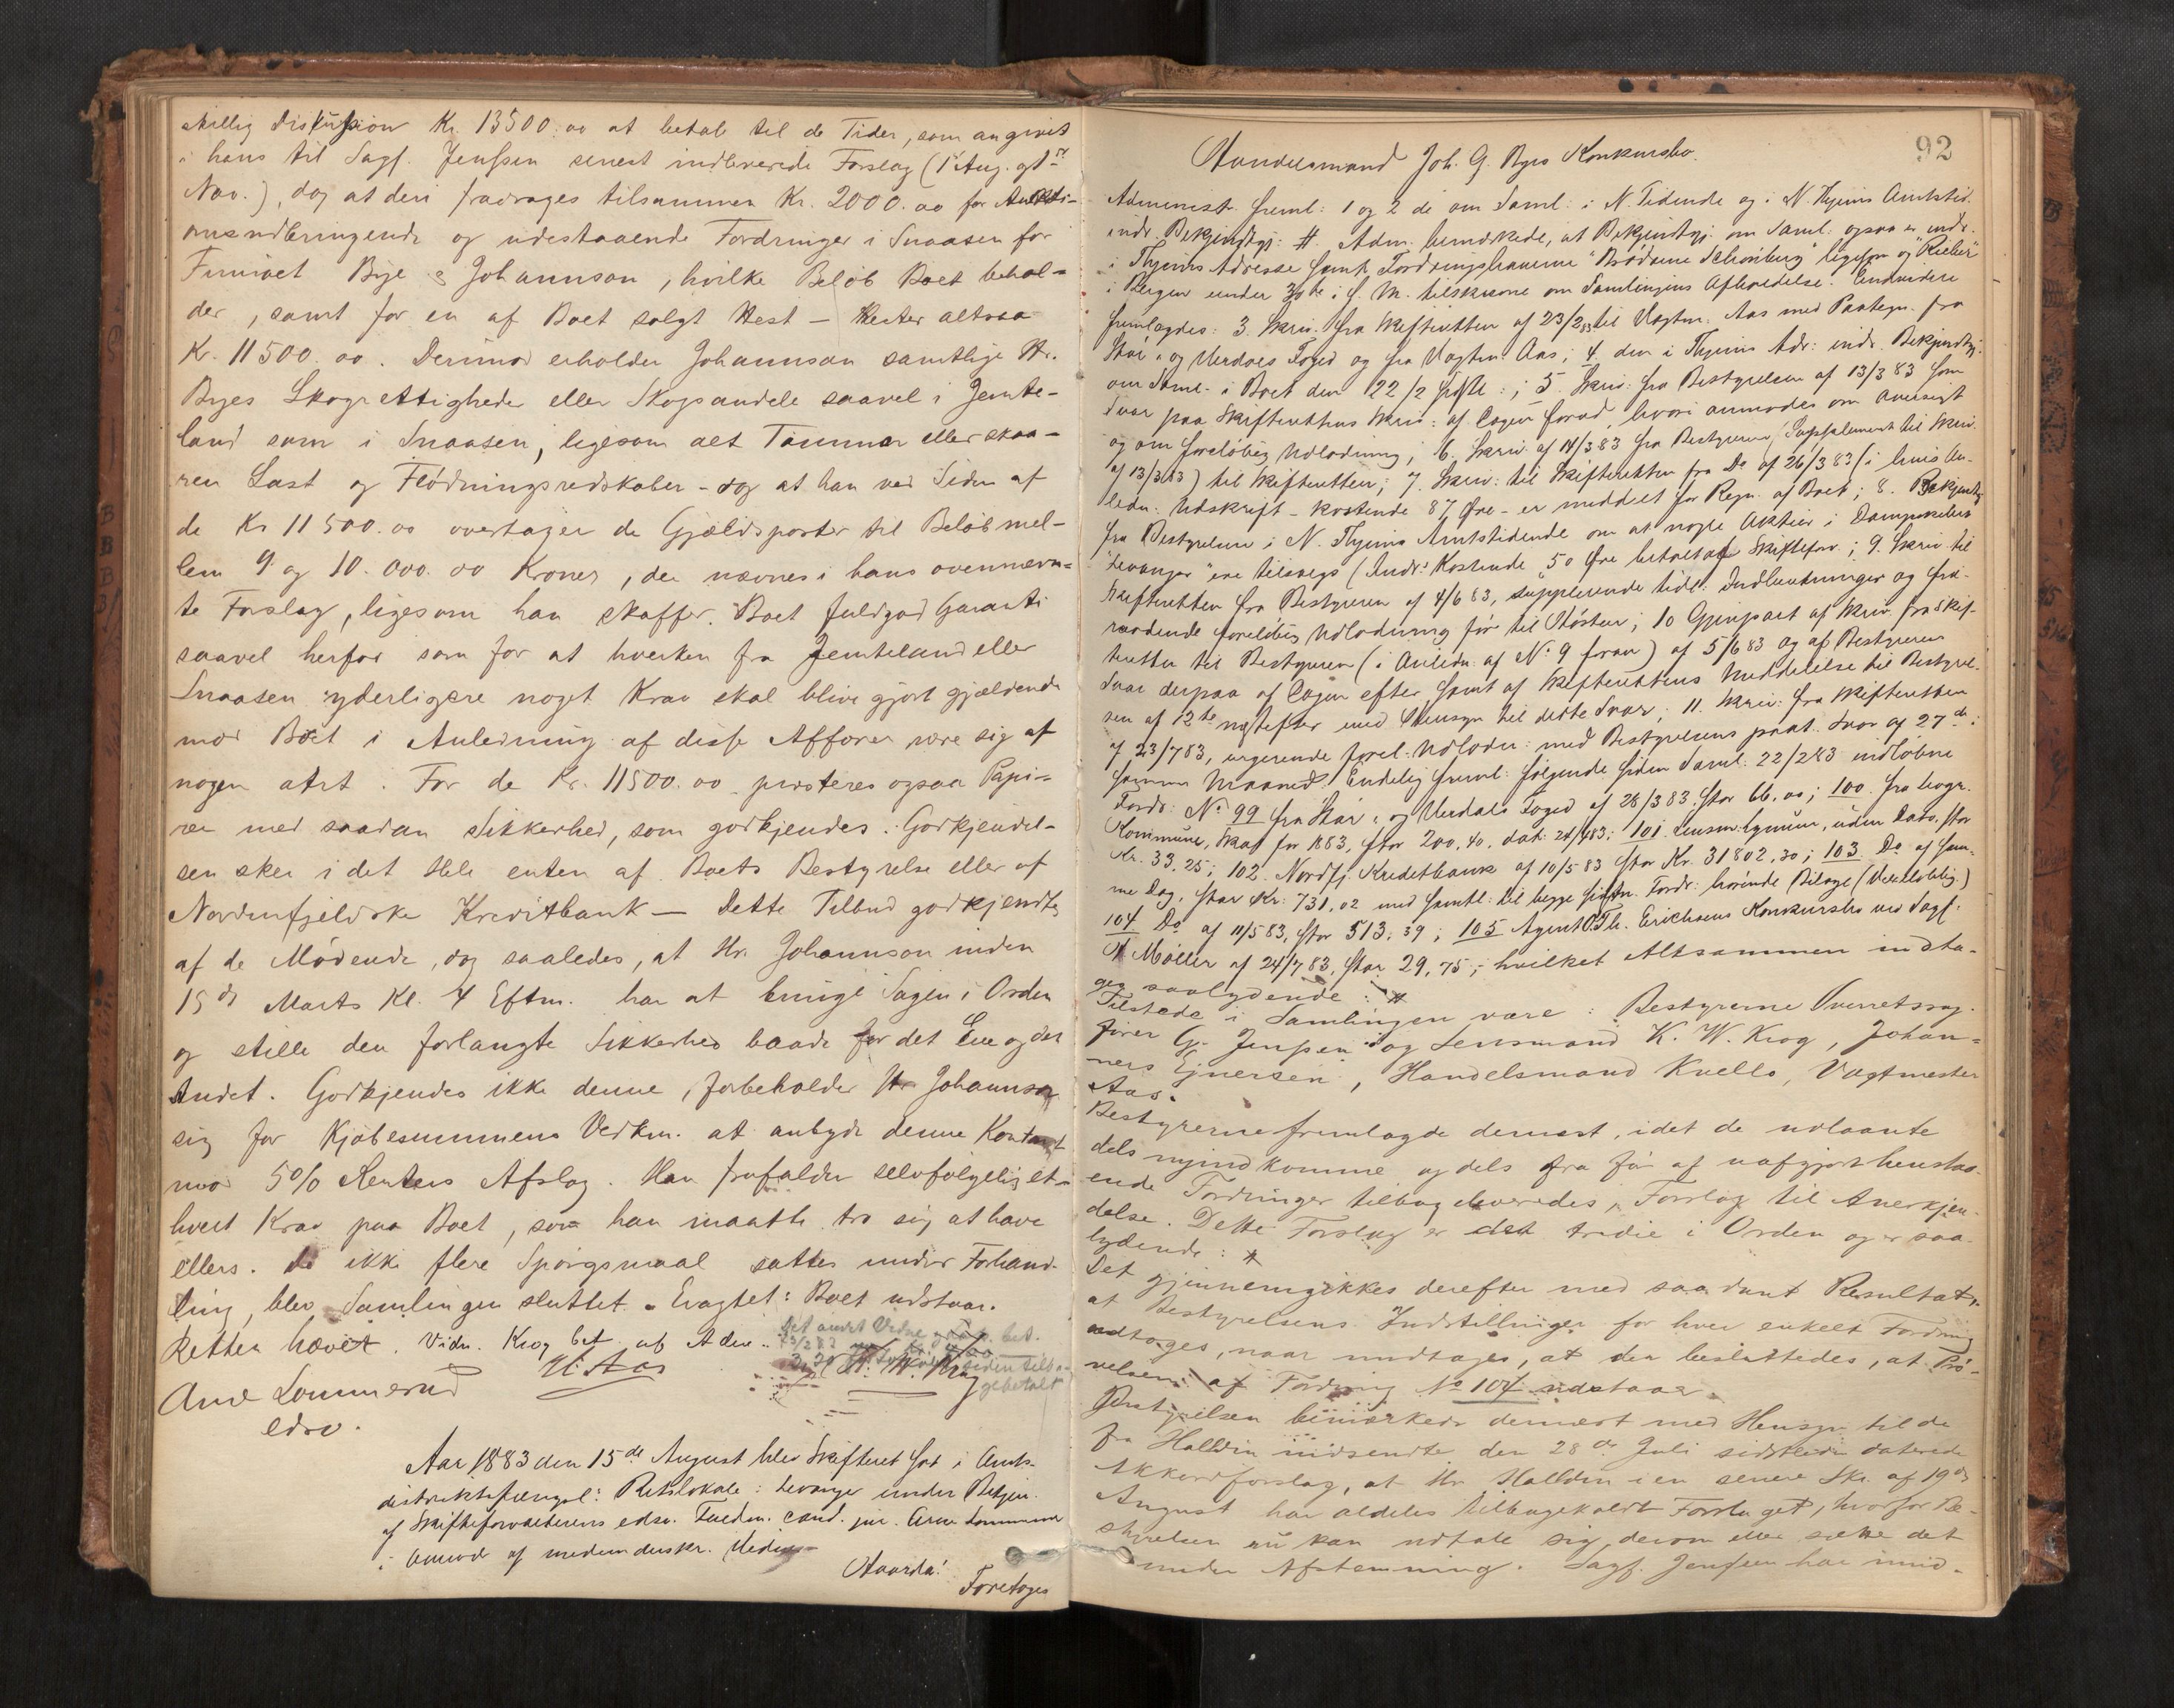 skillig Diskussion Kr. 13500.00 at betale til de Tider, som angivet
i hans til Sagf. Jenssen senest indleverede Forslag (1 Aug. og 1ste
Nov.), dog at deri fradrages tilsammen Kr. 2000.00 for Aukti-
onsindbringende og udestaaende Fordringer i Snaasen for
Firmaet Bye & Johannson, hvilke Beløb Boet behol-
der, samt for en af Boet solgt Hest – Rester altsaa
Kr. 11500.00. Derimod erholder Johannson samtlige Hr.
Byes Skogrettigheder eller Skogsandele saavel i Jemte-
land som i Snaasen, ligesom alt Tømmer eller skaa-
ren Last og Flødningsredskaber – dog at han ved Siden af
de Kr 11500.00 overtager de Gjældsposter til Beløb mel-
lem 9 og 10.000.00 Kroner, der nævnes i hans ovennævn-
te Forslag, ligesom han skaffer Boet fuldgod Garanti
saavel herfor som for at hverken fra Jemteland eller
Snaasen yderligere noget Krav skal blive gjort gjældende
mod Boet i Anledning af disse Affærer være sig af
nogen art. For de Kr. 11500.00 præsteres ogsaa Papi-
rer med saadan Sikkerhed, som godkjendes. Godkjendel-
sen sker i det Hele enten af Boets Bestyrelse eller af
Nordenfjeldske Kreditbank – Dette Tilbud godkjendtes
af de Mødende, dog saaledes, at Hr. Johannson inden
15de Marts Kl. 4 Eftm. har at bringe Sagen i Orden
og stille den forlangte Sikkerhed baade for det Ene og det
Andet. Godkjendes ikke denne, forbeholder Hr Johannson
sig for Kjøbesummens Vedkm. at anbyde denne Kontant
mod 5% Renters Afslag. Han frafalder selvfølgelig et-
hvert Krav paa Boet, som han maatte tro sig at have
ellers. Da ikke flere Spørgsmaal sattes under Forhand-
ling, blev Samlingen sluttet. Eragtet: Boet udstaar.
Retten hævet. Vidn. Krog bet. af Adm.
Det andet Vidne bet.
Arne Lommerud U. Aas K. W. Krog
edsv.
Aar 1883 den 15de August blev Skifteret sat i Amts-
distriktsfængsl: Retslokale: Levanger under Betjen.
af Skifteforvalterens edsv. Fuldm. cand. jur. Arne Lommerud
i Overvær af medunderskr. Vidner
Hvorda:
Foretoges
92
Handelsmand Joh. G. Byes Konkursbo.
Administr. freml: 1 og 2 de om Saml: i N. Tidende og i N. Thjems Amtstid.
indr. Bekjendtgj: # Adm. bemærkede, at Bekjendtgj. om Saml: ogsaa er indr.
i Thjems Adresse samt Fordringshaverne "Brødrene Schønberg" ligesom og "Rieber"
i Bergen under 30de i f. M. tilskrevne om Samlingens Afholdelse. Endvidere
fremlagdes: 3. Skriv. fra Skifteretten af 23/2 83 til Vagtm. Aas med Paategn. fra
Stør- og Værdals Foged og fra Vagtm. Aas; 4. den i Thjems Adr: indr. Bekjendtgj.
om Saml. i Boet den 22/2 sidstl:; 5. Skriv: fra Bestyrelsen af 13/3 83 som
Svar paa Skifterettens Skriv: af Dagen forud, hvori anmodes om Oversigt
og om foreløbig Udlodning; 6. Skriv. af 14/3 83 fra Bestyreren (Supplement til Skriv.
af 13/3 83) til Skifteretten; 7. Skriv: til Skifteretten fra Do af 26/3 83 (i hvis An-
ledn: Udskrift – kostende 87 Øre – er meddelt for Regn. af Boet; 8. Bekjendtg.
fra Bestyrelsen i N. Thjems Amtstidende om at nogle Aktier i Dampskibet
"Levanger" ere tilsalgs (Indr: Kostende 50 Øre betalt af Skifteforv.; 9. Skriv til
Skifteretten fra Bestyreren af 4/6 83, supplerende tidl: Indberetninger og fra-
raadende foreløbig Udlodning før til Høsten; 10 Gjenpart af Skriv. fra Skif-
teretten til Bestyreren (i Anledn: af No 9 foran) af 5/6 83 og af Bestyrerens
Svar derpaa af Dagen efter samt af Skifterettens Meddelelse til Bestyrel-
sen af 12te næstefter med Hensyn til dette Svar; 11. Skriv: fra Skifteretten
af 23/7 83, urgerende forel. Udlodn: med Bestyrelsens paat. Svar af 27de
samme Maaned. Endelig freml: følgende siden Saml: 22/2 83 indløbne
Fordr: No 99 fra Stør- og Værdals Foged af 28/3 83, stor 66,00; 100. fra Levgr.
Kommune, Skat for 1883, stor 200,40, dat: 24/4 83; 101. Lensm: Lynum, uden Dato, stor
Kr. 33,25; 102. Nordfj. Kreditbank af 10/5 83 stor Kr. 31802,30; 103 Do af sam-
me Dag, stor Kr: 731,02 med samtl: til begge sidstn. Fordr: hørende Bilage (Vexelobligt.)
104 Do af 11/5 83, stor 513,39; 105 Agent O. Th. Erichsens Konkursbo ved Sagf:
A Møller af 24/7 83, stor 29,75; hvilket Altsammen indta-
ges saalydende: #
Tilstede i Samlingen vare: Bestyrerne Overretssag-
fører G. Jenssen og Lensmand K. W. Krog, Johan-
nes Ejnersen, Handelsmand Kvello, Vagtmester
Aas.
Bestyrerne fremlagde dernæst, idet de udlaante
dels nyindkomne og dels fra før af uafgjort henstaa-
ende Fordringer tilbageleveredes, Forslag til Anerkjen-
delse. Dette Forslag er det tredie i Orden og er saa
lydende: #
Det gjennemgikkes derefter med saadant Resultat,
at Bestyrelsens Indstillinger for hver enkelt Fordring
vedtoges, naar undtages, at det besluttedes, at Prø-
velsen af Fordring No 104 udstaar.
Bestyrelsen bemærkede dernæst med Hensyn til de
fra Halldin indsendte den 28de Juli sidstleden daterede
Akkordforslag, at Hr. Halldin i en senere Skr. af 19de
August har aldeles tilbagekaldt Forslaget, hvorfor Be-
styrelsen ei kan udtale sig derom eller sætte det
under Afstemning. Sagf. Jenssen har imid-